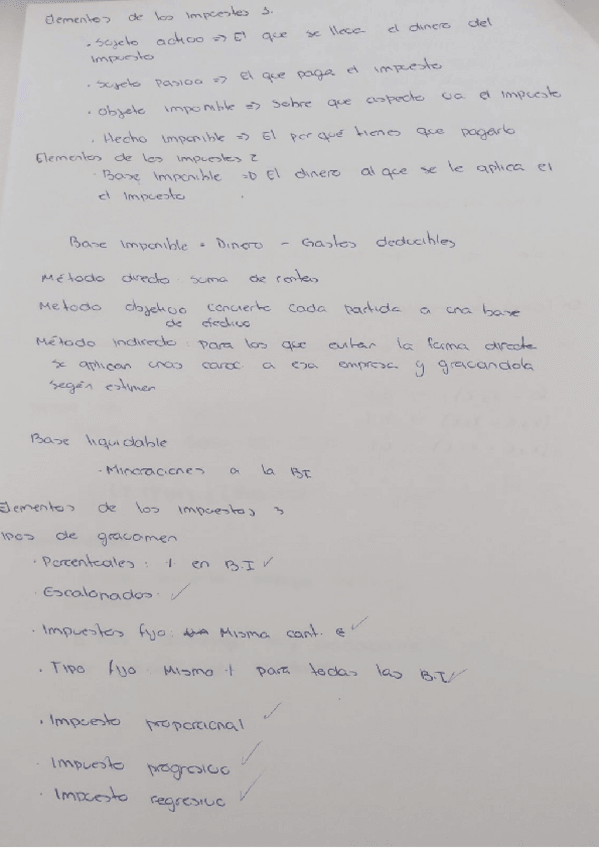 Elementos de los impuestos 1.
· Sujeto activo => El que se lleva el dinero del
impuesto
· Sujeto pasivo => El que paga el impuesto
· Objeto imponible => Sobre que aspecto va el impuesto
· Hecho Imponible => El por qué tienes que pagarlo
Elementos de los impuestos 2
· Base Imponible => El dinero al que se le aplica el
el impuesto
Base Imponible = Dinero - Gastos deducibles
Método directo: suma de
Método objetivo: convierte cada partida a una base
de
Método Indirecto: para los que evitan la forma directa
se aplican unas a esa empresa y gravandola
según estimen
Base liquidable
· Minoraciones a la BI
Elementos de los impuestos 3
ipos de gravamen
· Porcentuales: % en B.I ✓
· Escalonados ✓
· Impuestos fijo: Misma cant. € ✓
· Tipo fijo: Mismo % para todas las B.I ✓
· Impuesto proporcional ✓
· Impuesto progresivo ✓
· Impuesto regresivo ✓